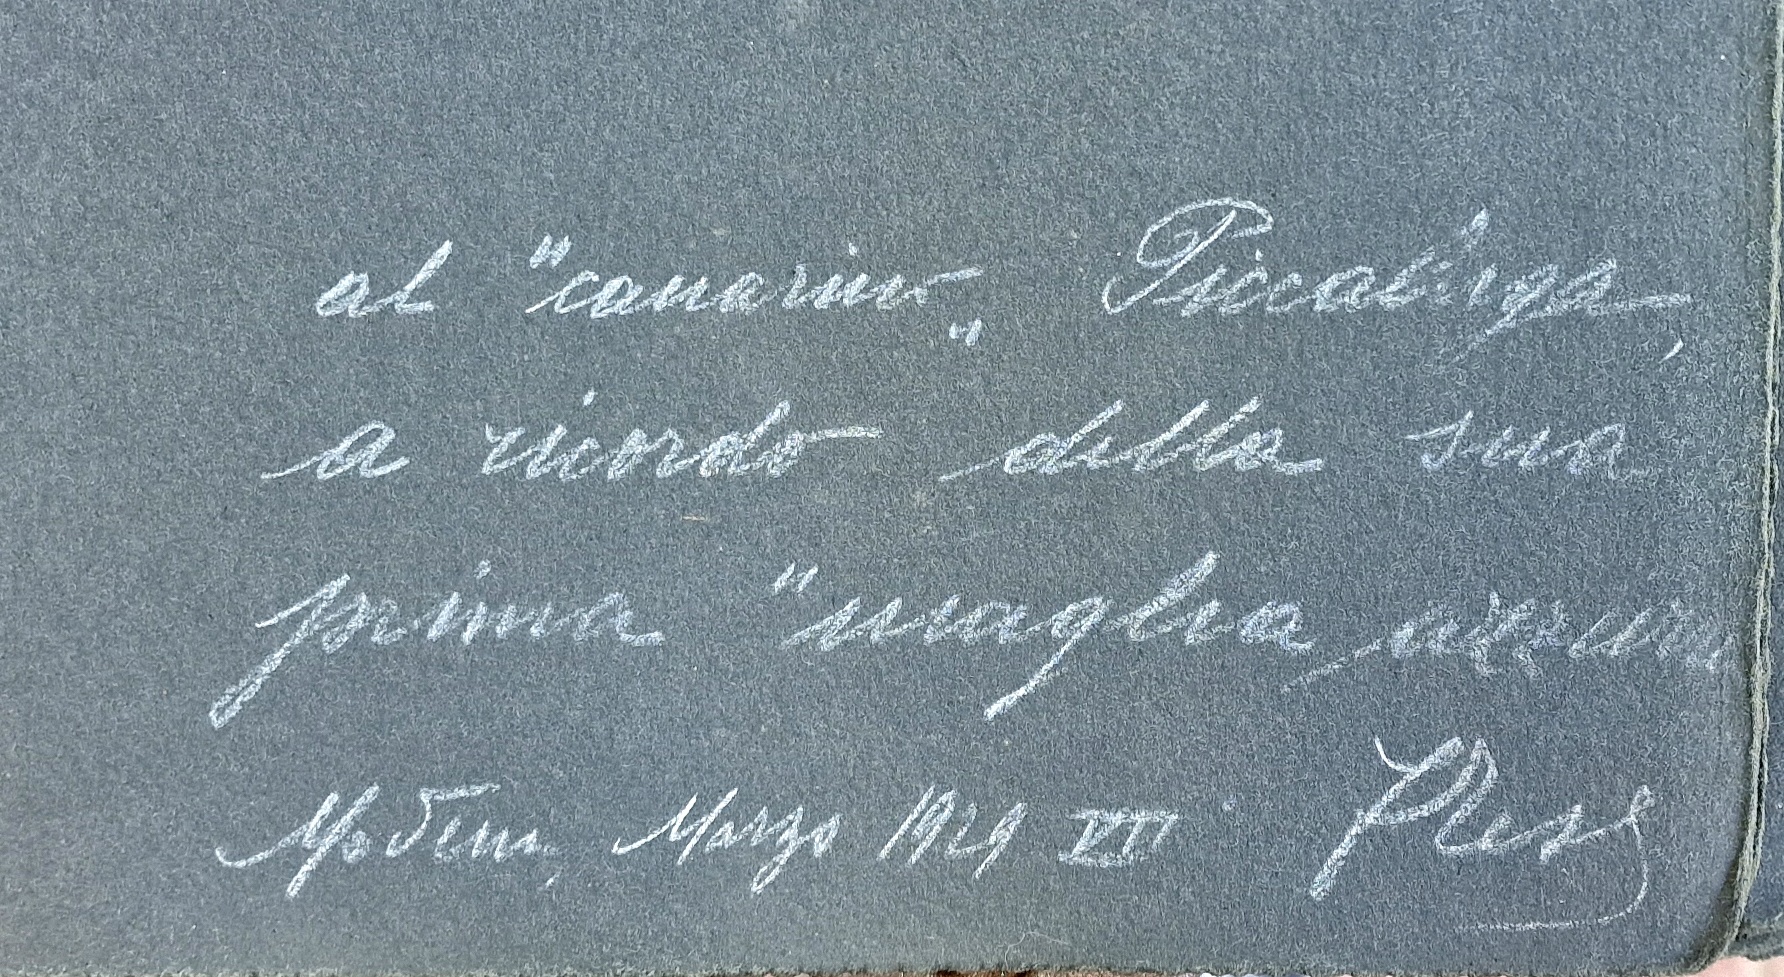 al "canarino„ Piccaluga,
a ricordo della sua
prima "maglia azzurra
Modena, Marzo 1929 VII